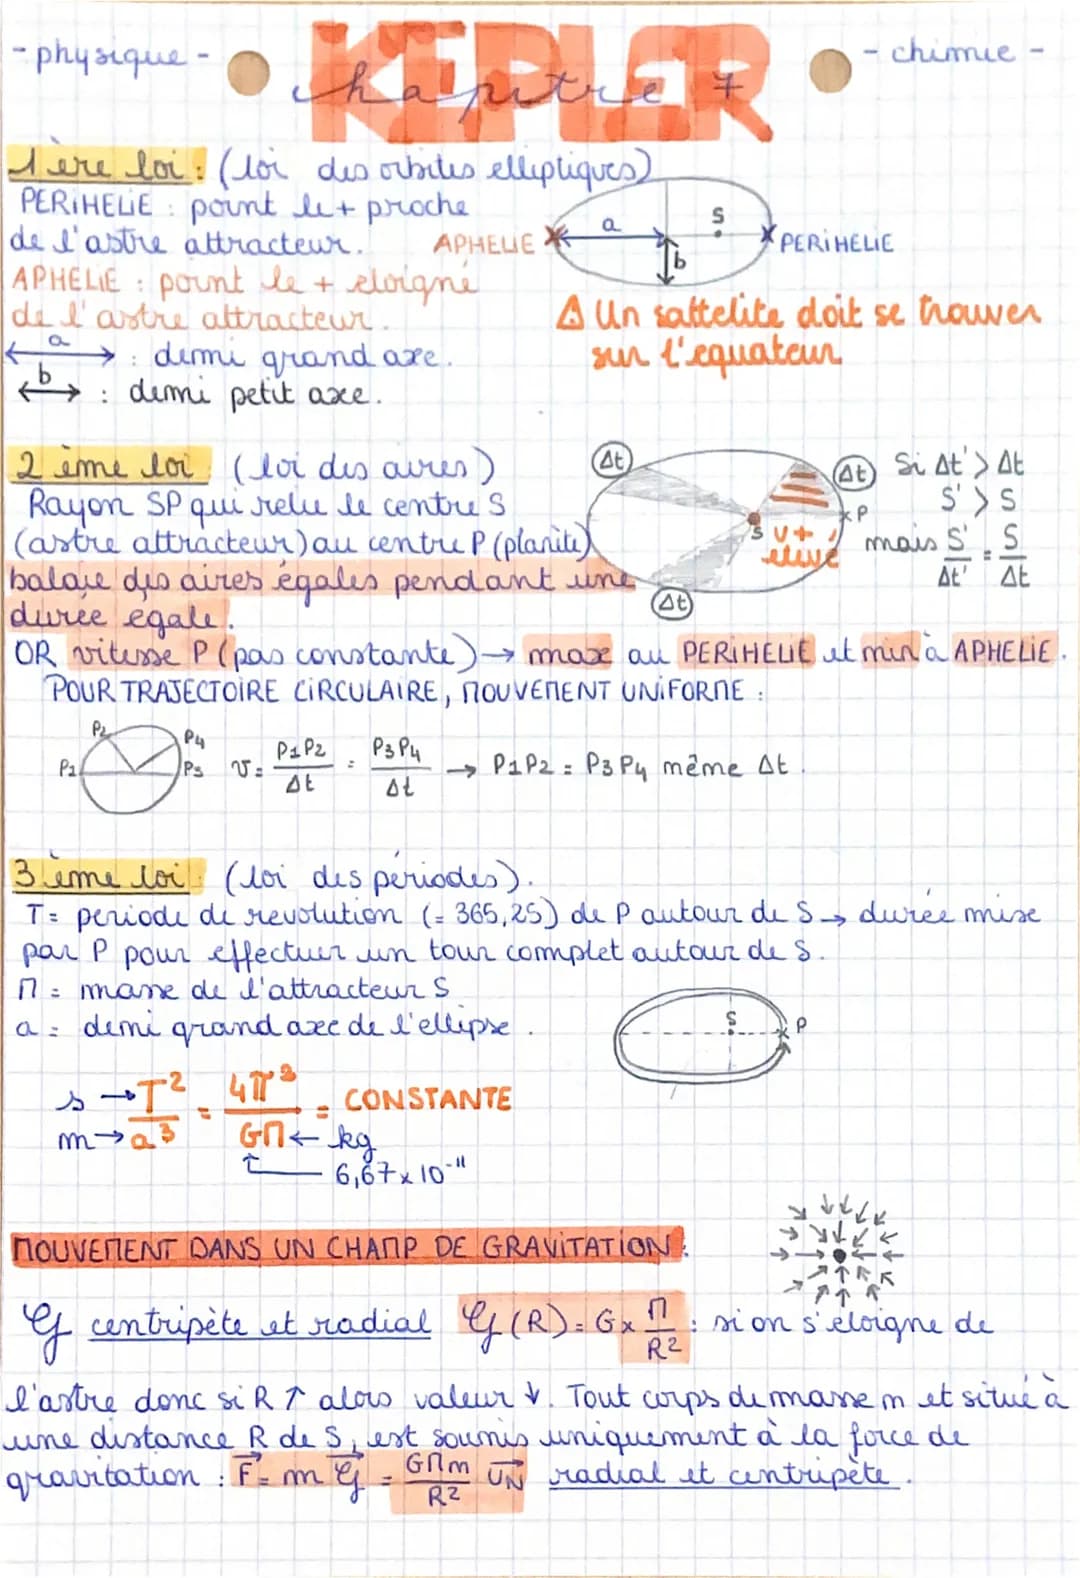 - physique -
KEPLER
chapitre 7
- chimie -
1ère loi : (loi des orbites elliptiques)
PERIHELIE : point le + proche
de l'astre attracteur.
APHELIE
a
b
S
PERIHELIE
APHELIE : point le + eloigné
de l'astre attracteur.
⚠ Un sattelite doit se trouver
sur l'equateur
a : demi grand axe.
b : demi petit axe.
2 ème loi (loi des aires)
Rayon SP qui relie le centre S
(astre attracteur) au centre P (planète)
balaie des aires égales pendant une
durée égale.
Δt
Δt
Δt
S
P
v + élevé
Si Δt' > Δt
S' > S
mais S'/Δt' = S/Δt
OR vitesse P (pas constante) → max au PERIHELIE et min à APHELIE.
POUR TRAJECTOIRE CIRCULAIRE, MOUVEMENT UNIFORME :
P1
P2
P4
P3
v = P1P2/Δt = P3P4/Δt → P1P2 = P3P4 même Δt.
3 ème loi (loi des périodes).
T = periode de revolution (= 365,25) de P autour de S → durée mise
par P pour effectuer un tour complet autour de S.
M = masse de l'attracteur S
a = demi grand axe de l'ellipse.
S
P
s → T²/a³ = 4π²/GM = CONSTANTE
m →
← kg
6,67 x 10⁻¹¹
MOUVEMENT DANS UN CHAMP DE GRAVITATION :
G centripète et radial G (R) = G x M/R² : si on s'éloigne de
l'astre donc si R ↑ alors valeur ↓. Tout corps de masse m et situé à
une distance R de S, est soumis uniquement à la force de
gravitation : F = m G = GMm/R² UN radial et centripète.